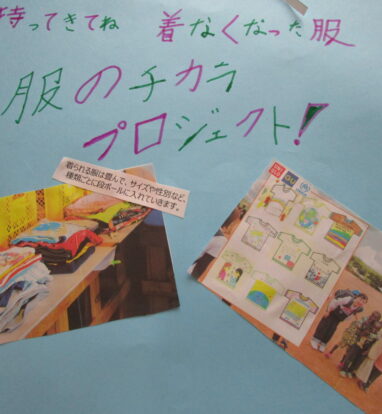 持ってきてね 着なくなった服
服のチカラ
プロジェクト!
着られる服は畳んで、サイズや性別など、
種類ごとに段ボールに入れていきます。